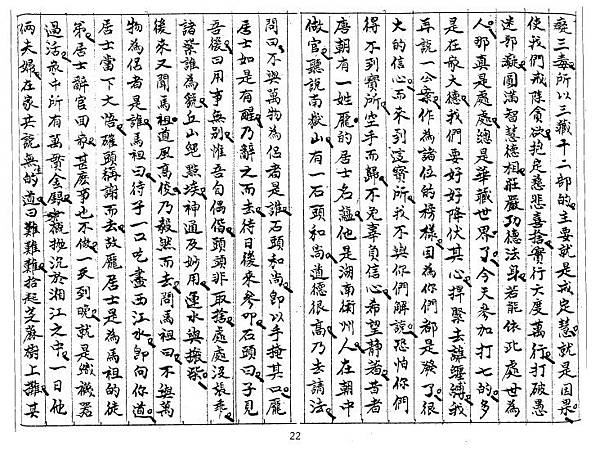 癡三毒所以三藏十二部的主要就是戒定慧就是因果
使我們戒除貪欲抱定慈悲喜捨實行六度萬行打破愚
迷邪癡圓滿智慧德相莊嚴功德法身若能依此處世為
人那真是處處總是華藏世界了今天參加打七的多
是在家大德我們要好好降伏其心趕緊去離纏縛我
再說一公案作為諸位的榜樣因為你們都是發了很
大的信心而來到這寶所我不與你們解說恐怕你們
得不到寶所空手而歸不免辜負信心希望靜着昔者
唐朝有一姓龐的居士名蘊他是湖南衡州人在朝中
做官聽說南嶽山有一石頭和尚道德很高乃去請法
問曰不與萬物為侶者是誰石頭和尚即以手掩其口龐
居士如是有醒乃辭之而去待日後來參叩石頭曰子見
吾後日用事無別惟吾自偶偕頭頭非取捨處處沒張乖
諸紫誰為號丘山絕點埃神通及妙用運水與搬柴
後來又聞馬祖道風高俊乃毅然而去問馬祖曰不與萬
物為侶者是誰馬祖曰待子一口吃盡西江水即向你道
居士當下大悟確頭稱謝而去故龐居士是為馬祖的徒
弟居士辭官回家甚麼事也不做一天到晚就是織襪器
過活家中所有萬貫金銀概拋沉於湘江之中一日他
倆夫婦在家共說無生的道曰難難難拾起芝麻樹上攤其
22